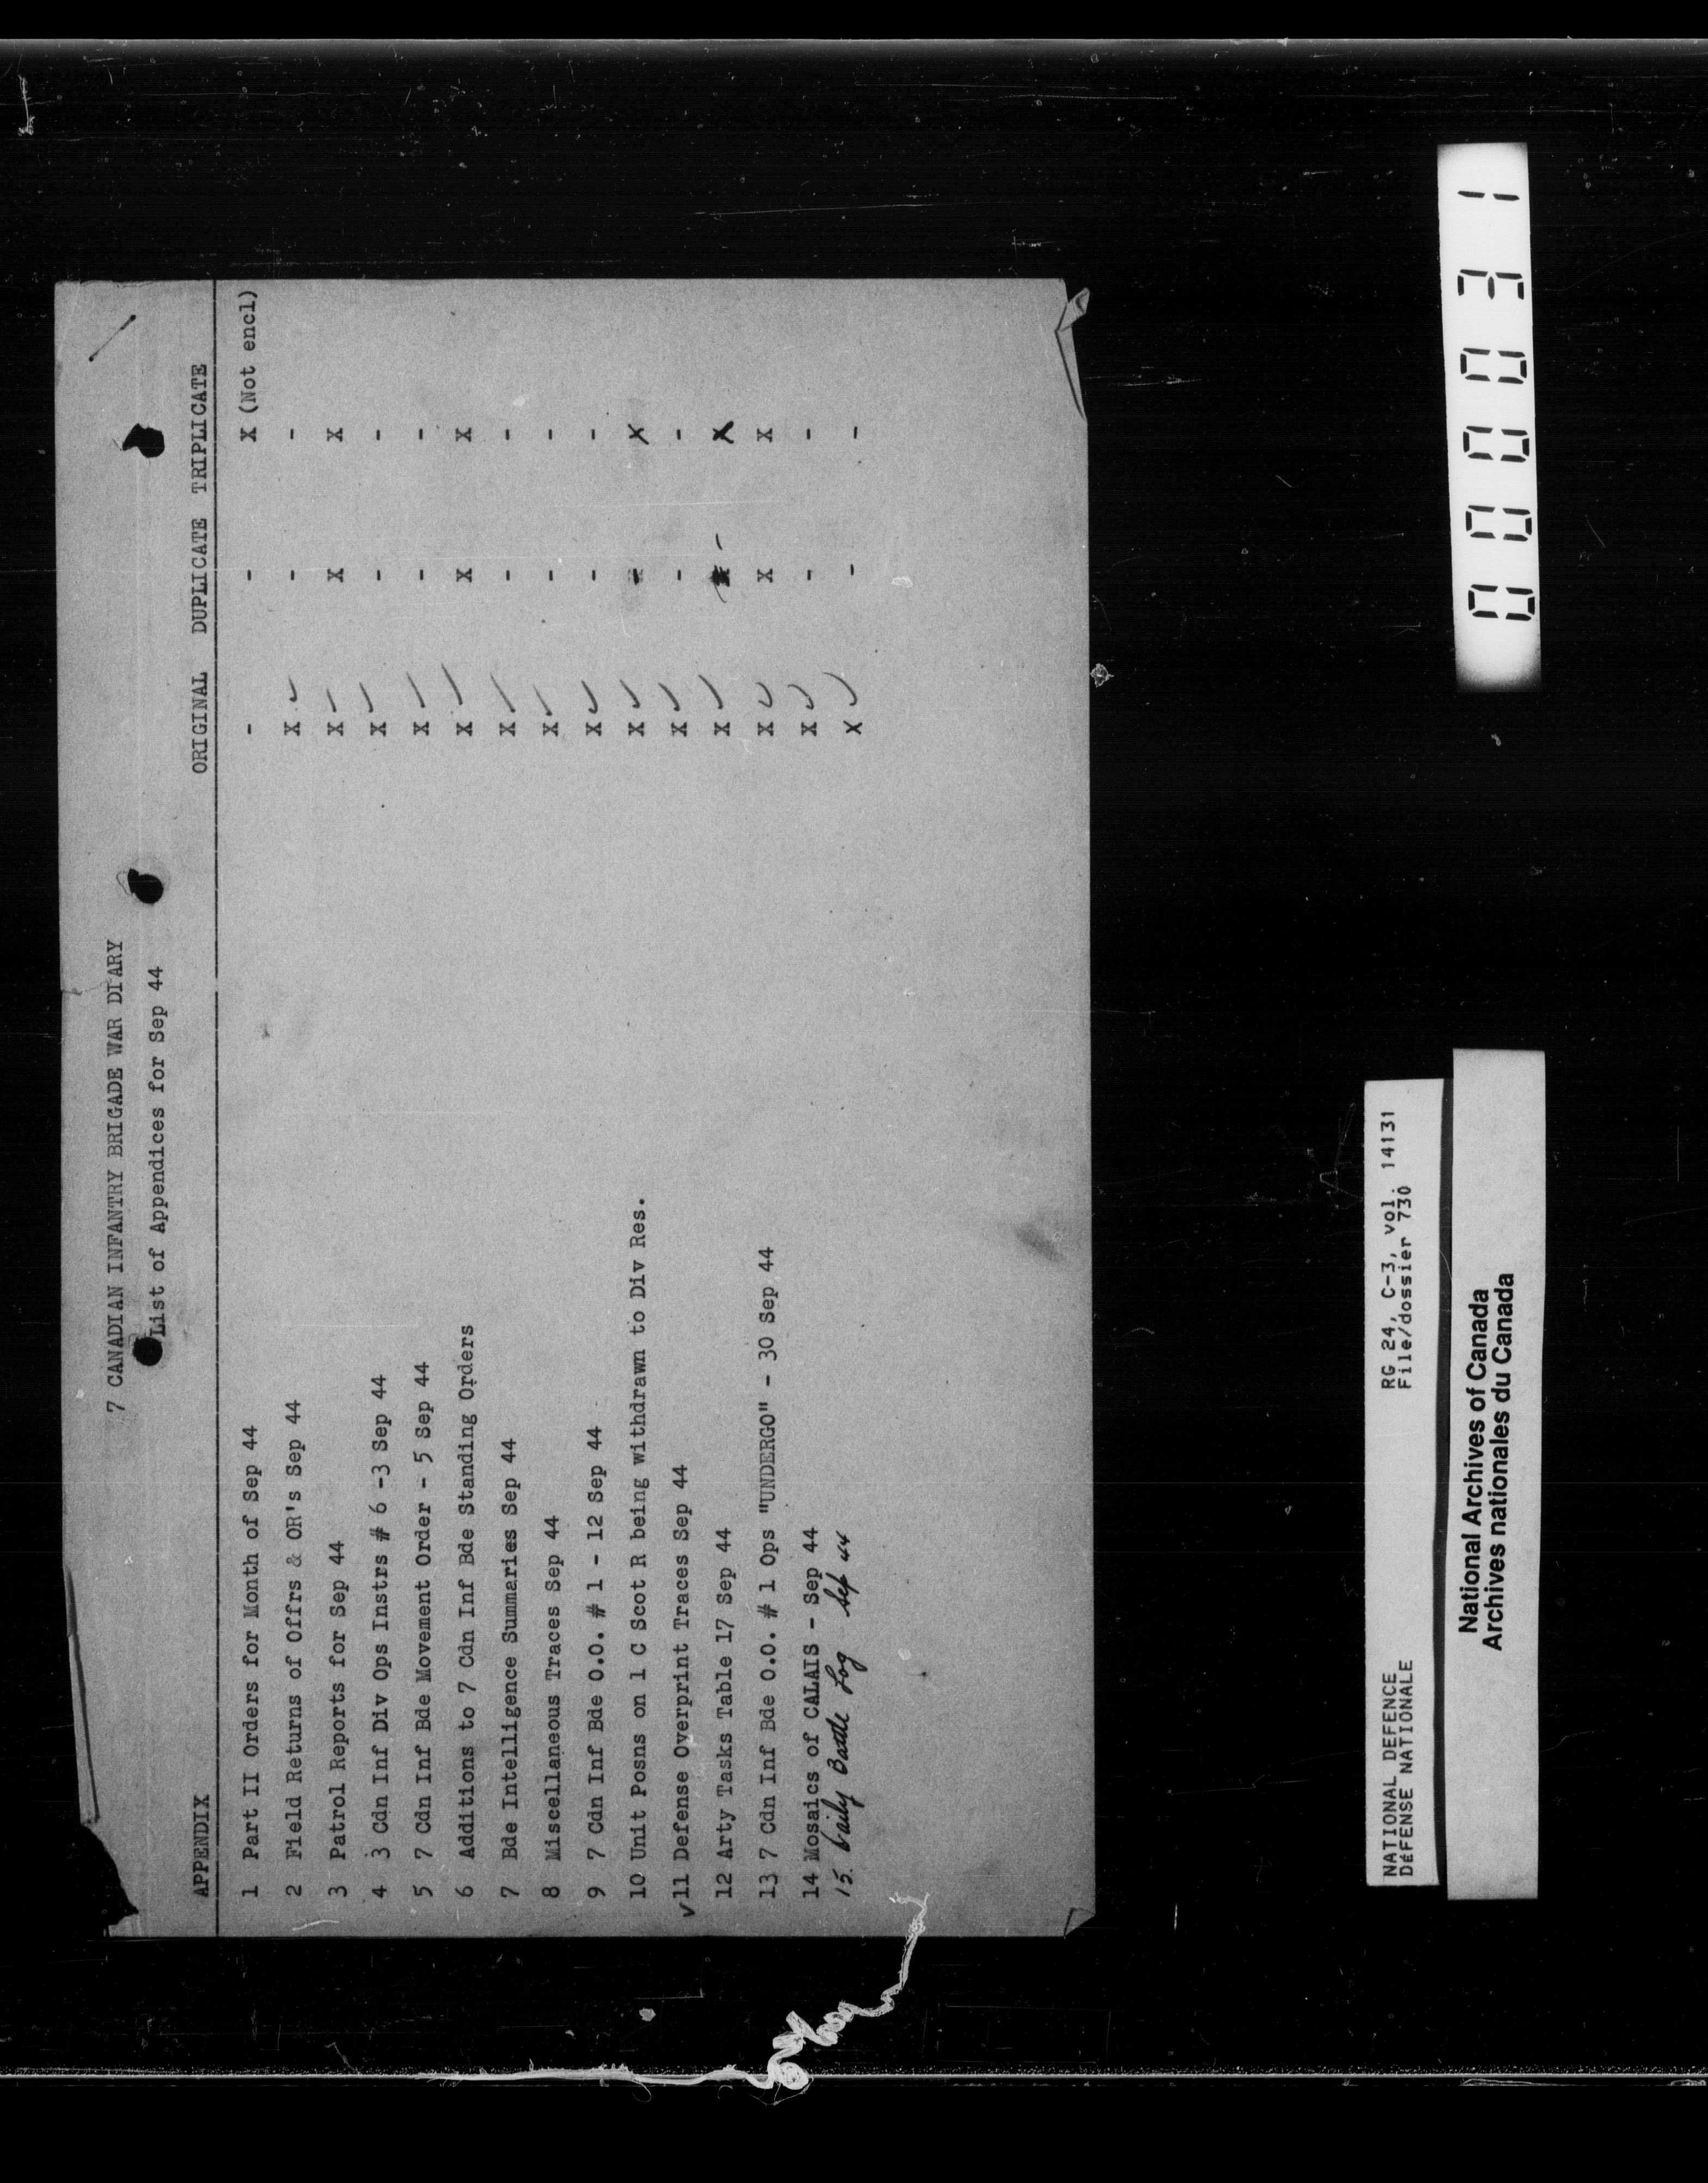 7 CANADIAN INFANTRY BRIGADE WAR DIARY
List of Appendices for Sep 44
APPENDIX ORIGINAL DUPLICATE TRIPLICATE
1 Part II Orders for Month of Sep 44 - - X (Not encl)
2 Field Returns of Offrs & OR's Sep 44 X - -
3 Patrol Reports for Sep 44 X X X
4 3 Cdn Inf Div Ops Instrs # 6 -3 Sep 44 X - -
5 7 Cdn Inf Bde Movement Order - 5 Sep 44 X - -
6 Additions to 7 Cdn Inf Bde Standing Orders X X X
7 Bde Intelligence Summaries Sep 44 X - -
8 Miscellaneous Traces Sep 44 X - -
9 7 Cdn Inf Bde O.O. # 1 - 12 Sep 44 X - -
10 Unit Posns on 1 C Scot R being withdrawn to Div Res. X - X
✓11 Defense Overprint Traces Sep 44 X - -
12 Arty Tasks Table 17 Sep 44 X - X
13 7 Cdn Inf Bde O.O. # 1 Ops "UNDERGO" - 30 Sep 44 X X X
14 Mosaics of CALAIS - Sep 44 X - -
15. Daily Battle Log Sep 44 X - -
NATIONAL DEFENCE RG 24, C-3, vol. 14131
DéFENSE NATIONALE File/dossier 730
National Archives of Canada
Archives nationales du Canada
000031